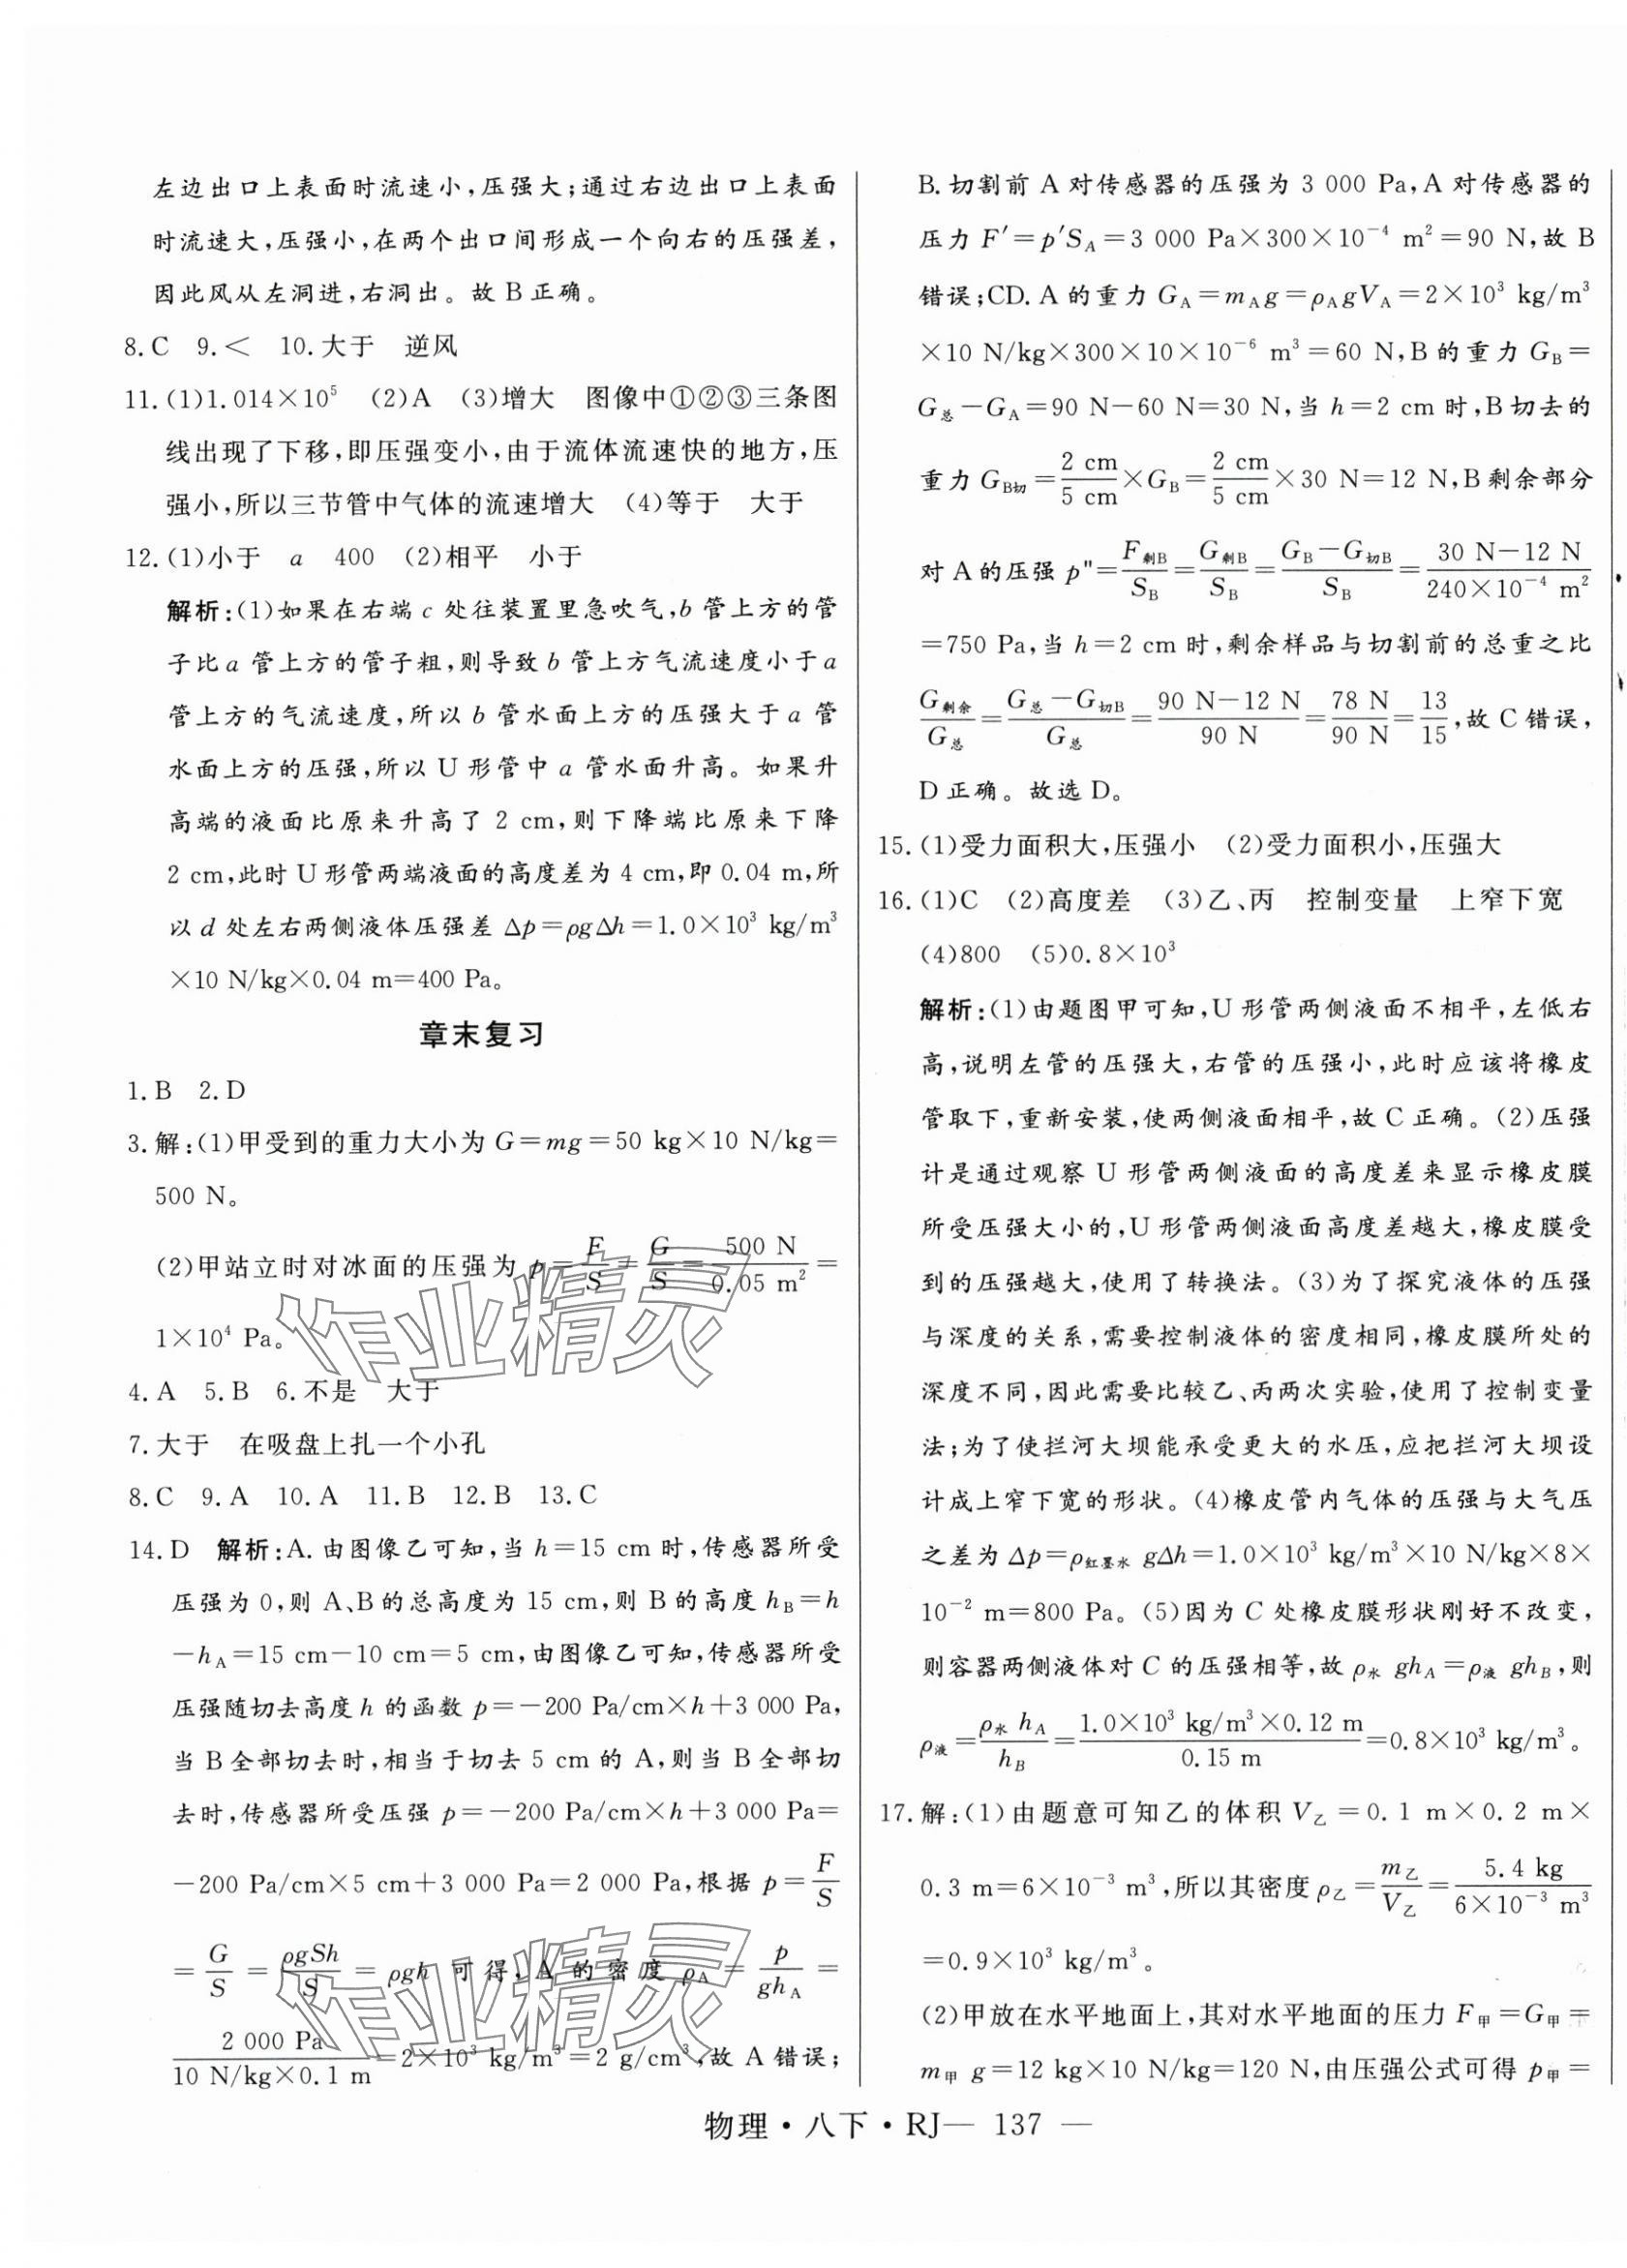 左边出口上表面时流速小,压强大;通过右边出口上表面
时流速大,压强小,在两个出口间形成一个向右的压强差,
因此风从左洞进,右洞出。故 B 正确。
8. C 9. < 10. 大于 逆风
11. (1)1.014×10⁵ (2)A (3)增大 图像中①②③三条图
线出现了下移,即压强变小,由于流体流速快的地方,压
强小,所以三节管中气体的流速增大 (4)等于 大于
12. (1)小于 a 400 (2)相平 小于
解析:(1)如果在右端 c 处往装置里急吹气,b 管上方的管
子比 a 管上方的管子粗,则导致 b 管上方气流速度小于 a
管上方的气流速度,所以 b 管水面上方的压强大于 a 管
水面上方的压强,所以 U 形管中 a 管水面升高。如果升
高端的液面比原来升高了 2 cm,则下降端比原来下降
2 cm,此时 U 形管两端液面的高度差为 4 cm,即 0.04 m,所
以 d 处左右两侧液体压强差 Δp=ρgΔh=1.0×10³ kg/m³
×10 N/kg×0.04 m=400 Pa。
章末复习
1. B 2. D
3. 解:(1)甲受到的重力大小为 G=mg=50 kg×10 N/kg=
500 N。
(2)甲站立时对冰面的压强为 p=F/S=G/S=500 N/0.05 m²=
1×10⁴ Pa。
4. A 5. B 6. 不是 大于
7. 大于 在吸盘上扎一个小孔
8. C 9. A 10. A 11. B 12. B 13. C
14. D 解析:A. 由图像乙可知,当 h=15 cm 时,传感器所受
压强为 0,则 A、B 的总高度为 15 cm,则 B 的高度 h_B=h
-h_A=15 cm-10 cm=5 cm,由图像乙可知,传感器所受
压强随切去高度 h 的函数 p=-200 Pa/cm×h+3 000 Pa,
当 B 全部切去时,相当于切去 5 cm 的 A,则当 B 全部切
去时,传感器所受压强 p=-200 Pa/cm×h+3 000 Pa=
-200 Pa/cm×5 cm+3 000 Pa=2 000 Pa,根据 p=F/S
=G/S=ρgSh/S=ρgh 可得,A 的密度 ρ_A=p/gh_A=
2 000 Pa/10 N/kg×0.1 m=2×10³ kg/m³=2 g/cm³,故 A 错误;
B. 切割前 A 对传感器的压强为 3 000 Pa,A 对传感器的
压力 F′=p′S_A=3 000 Pa×300×10⁻⁴ m²=90 N,故 B
错误;CD. A 的重力 G_A=m_Ag=ρ_AgV_A=2×10³ kg/m³
×10 N/kg×300×10×10⁻⁶ m³=60 N,B 的重力 G_B=
G_总-G_A=90 N-60 N=30 N,当 h=2 cm 时,B 切去的
重力 G_B切=2 cm/5 cm×G_B=2 cm/5 cm×30 N=12 N,B 剩余部分
对 A 的压强 p"=F_剩B/S_B=G_剩B/S_B=G_B-G_切B/S_B=30 N-12 N/240×10⁻⁴ m²
=750 Pa,当 h=2 cm 时,剩余样品与切割前的总重之比
G_剩余/G_总=G_总-G_切B/G_总=90 N-12 N/90 N=78 N/90 N=13/15,故 C 错误,
D 正确。故选 D。
15. (1)受力面积大,压强小 (2)受力面积小,压强大
16. (1)C (2)高度差 (3)乙、丙 控制变量 上窄下宽
(4)800 (5)0.8×10³
解析:(1)由题图甲可知,U 形管两侧液面不相平,左低右
高,说明左管的压强大,右管的压强小,此时应该将橡皮
管取下,重新安装,使两侧液面相平,故 C 正确。(2)压强
计是通过观察 U 形管两侧液面的高度差来显示橡皮膜
所受压强大小的,U 形管两侧液面高度差越大,橡皮膜受
到的压强越大,使用了转换法。(3)为了探究液体的压强
与深度的关系,需要控制液体的密度相同,橡皮膜所处的
深度不同,因此需要比较乙、丙两次实验,使用了控制变量
法;为了使拦河大坝能承受更大的水压,应把拦河大坝设
计成上窄下宽的形状。(4)橡皮管内气体的压强与大气压
之差为 Δp=ρ_红墨水 gΔh=1.0×10³ kg/m³×10 N/kg×8×
10⁻² m=800 Pa。(5)因为 C 处橡皮膜形状刚好不改变,
则容器两侧液体对 C 的压强相等,故 ρ_水 gh_A=ρ_液 gh_B,则
ρ_液=ρ_水 h_A/h_B=1.0×10³ kg/m³×0.12 m/0.15 m=0.8×10³ kg/m³。
17. 解:(1)由题意可知乙的体积 V_乙=0.1 m×0.2 m×
0.3 m=6×10⁻³ m³,所以其密度 ρ_乙=m_乙/V_乙=5.4 kg/6×10⁻³ m³
=0.9×10³ kg/m³。
(2)甲放在水平地面上,其对水平地面的压力 F_甲=G_甲=
m_甲 g=12 kg×10 N/kg=120 N,由压强公式可得 p_甲=
物理·八下·RJ— 137 —
作业精灵
作业精灵